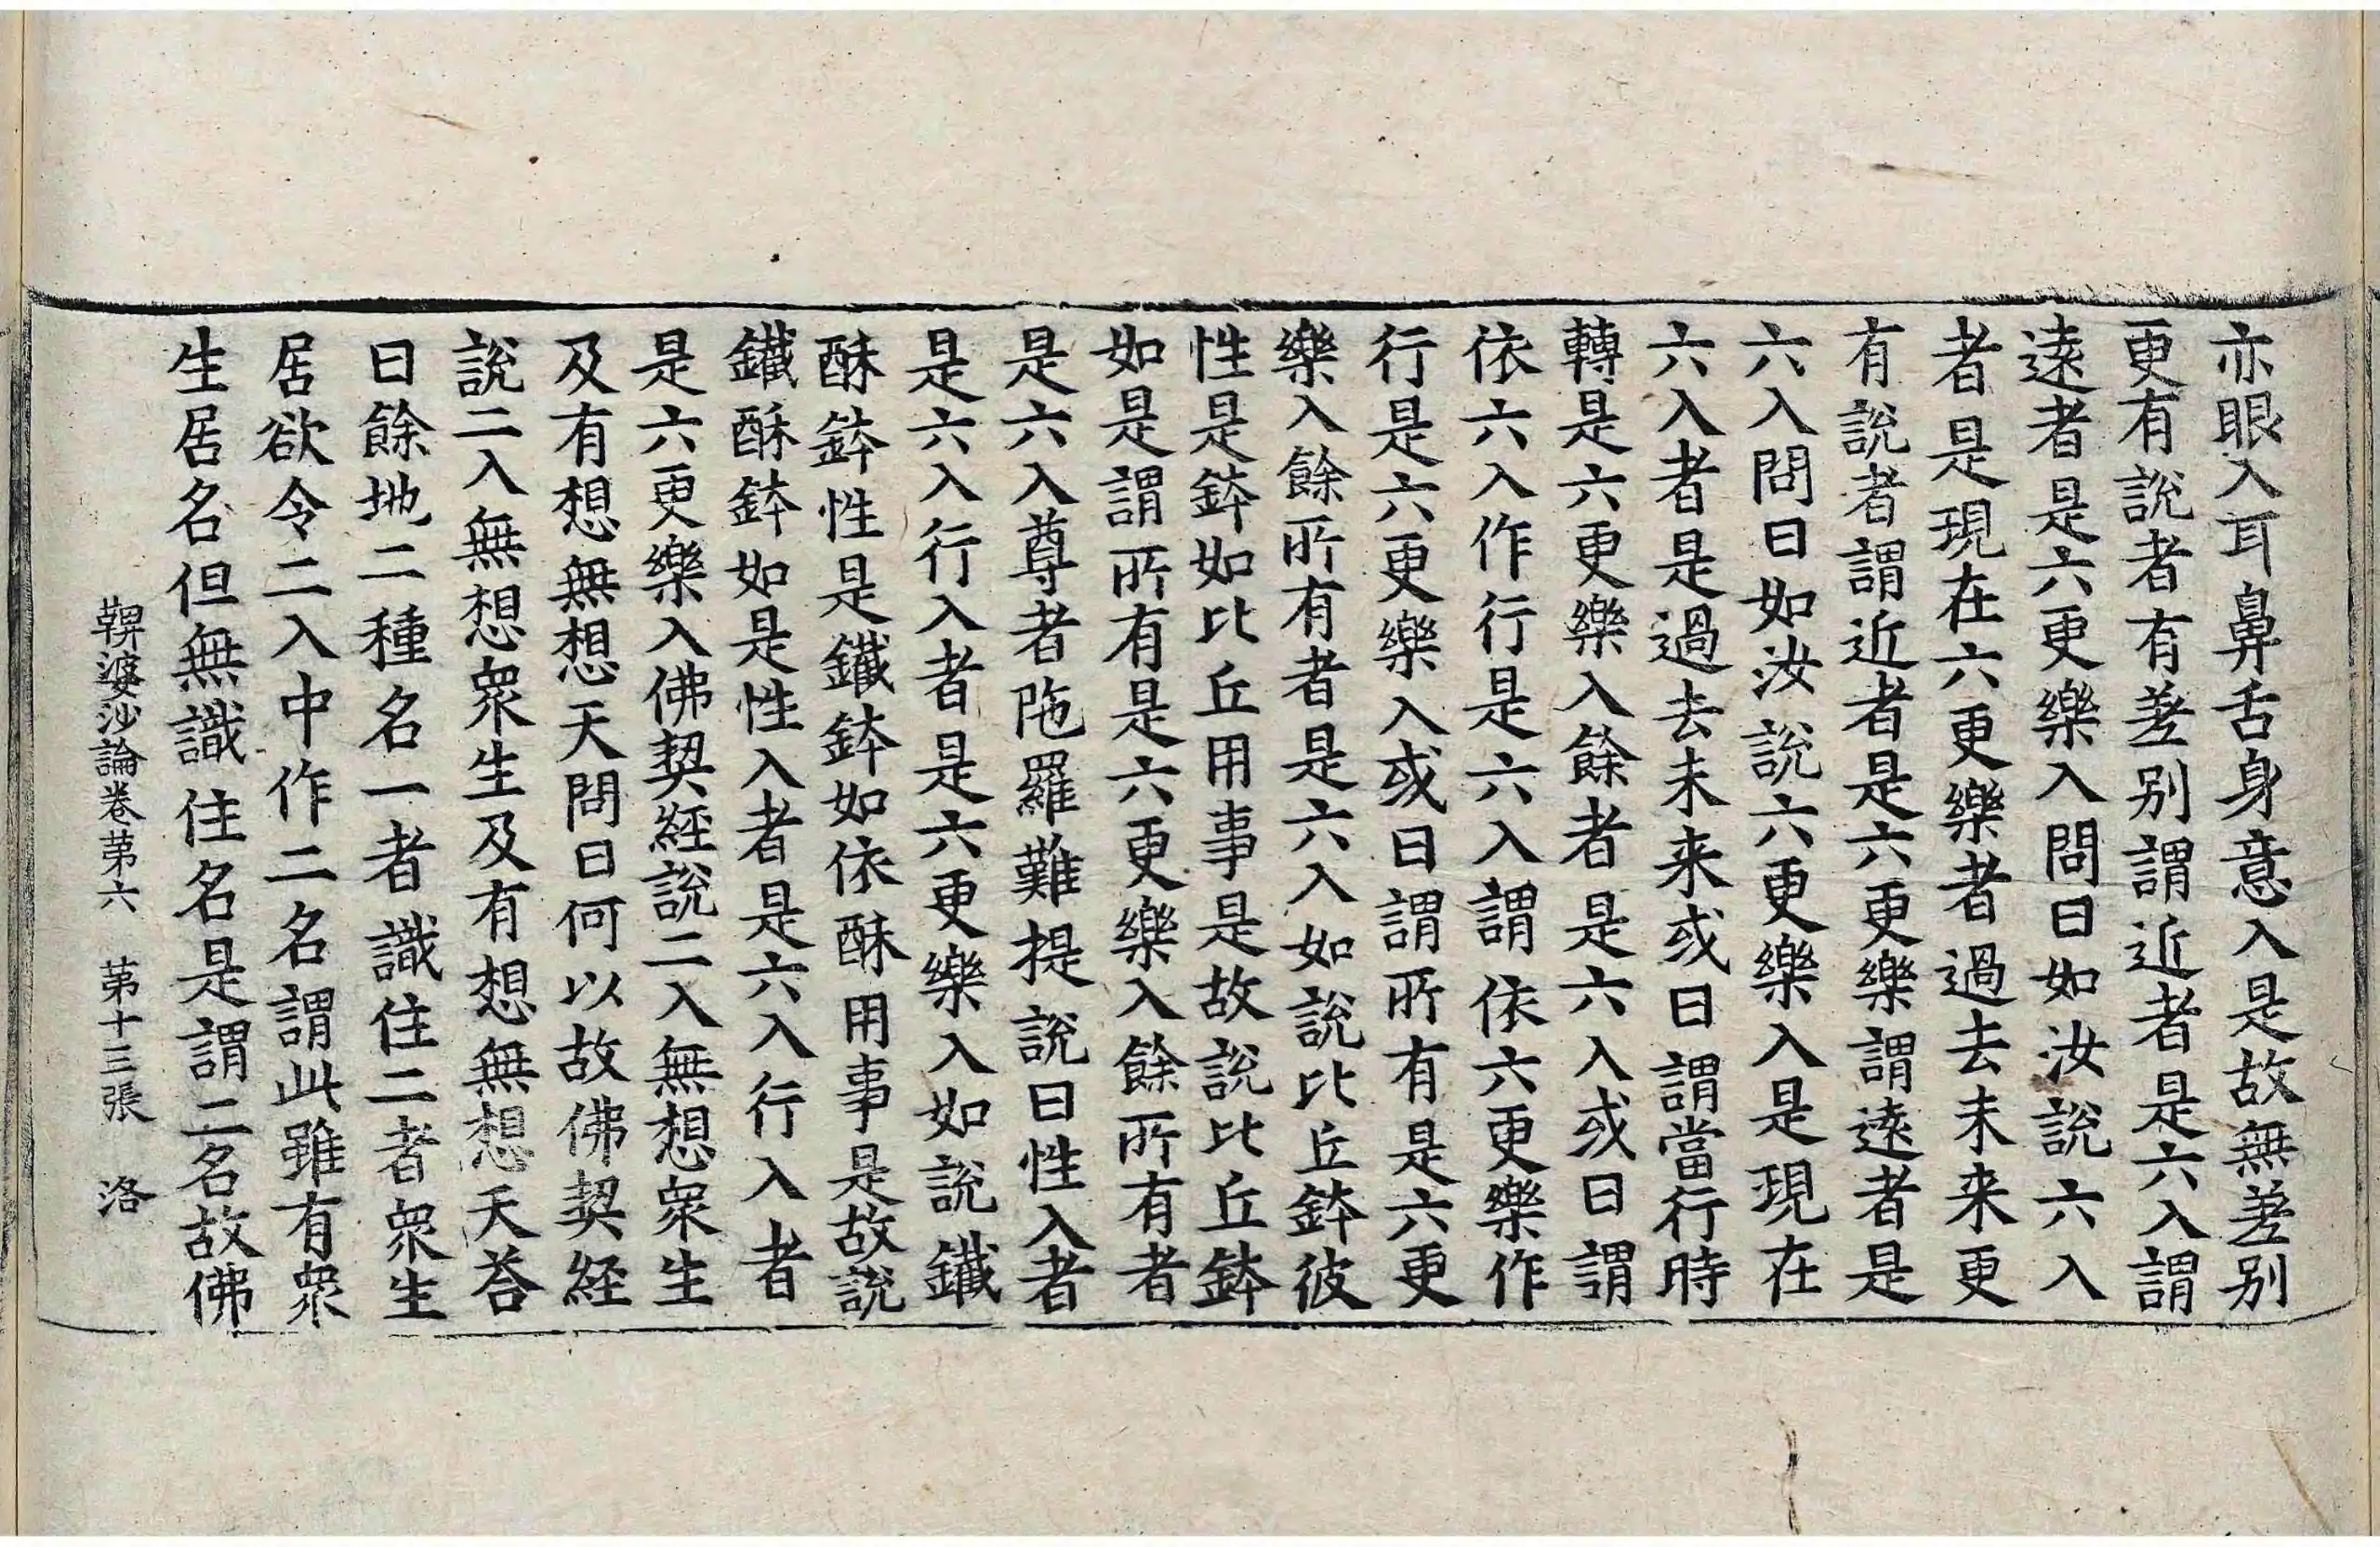 亦眼入耳鼻舌身意入是故無差別
更有說者有差別謂近者是六入謂
遠者是六更樂入問曰如汝說六入
者是現在六更樂者過去未来更
有說者謂近者是六更樂謂遠者是
六入問曰如汝說六更樂入是現在
六入者是過去未来或曰謂當行時
轉是六更樂入餘者是六入或曰謂
依六入作行是六入謂依六更樂作
行是六更樂入或曰謂所有是六更
樂入餘所有者是六入如說比丘鉢彼
性是鉢如比丘用事是故說比丘鉢
如是謂所有是六更樂入餘所有者
是六入尊者陁羅難提說曰性入者
是六入行入者是六更樂入如說鐵
酥鉢性是鐵鉢如依酥用事是故說
鐵酥鉢如是性入者是六入行入者
是六更樂入佛契経說二入無想衆生
及有想無想天問曰何以故佛契経
說二入無想衆生及有想無想天荅
曰餘地二種名一者識住二者衆生
居欲令二入中作二名謂此雖有衆
生居名但無識住名是謂二名故佛
鞞婆沙論卷苐六　苐十三張　洛